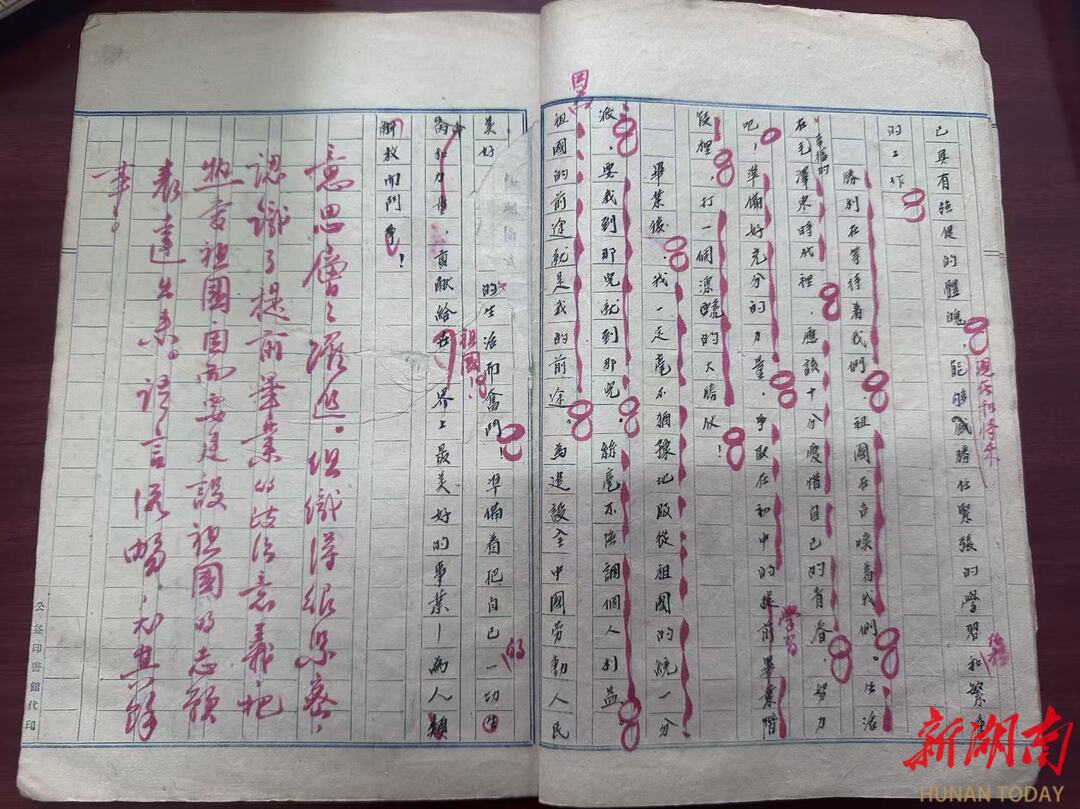 已具有強健的體魄，能够勝任緊張的學習和繁重
的工作
勝利在等待着我們。祖國在召喚着我們。生活
在毛澤東時代裡，應該十分愛惜自己的青春，努力
幸福的
吧，準備好充分的力量，爭取在初中的提前畢業階
學習
段裡，打一個漂亮的大勝仗！
畢業後，我一定毫不猶豫地服從祖國的統一分
派，要我到那兒就到那兒。絲毫不強調個人利益
因為
祖國的前途就是我的前途。為建設全中國勞動人民
美好
的生活而奮鬥！準備着把自己一切
的
和力量，貢献給世界上最美好的事業—為人類
祖國！
解放而鬥爭！
意思層層深進。組織得很緊密，
認識了提前畢業的政治意義，把
熱愛祖國因而要建設祖國的志願
表達出來。語言流暢，
公益印書館代印
新湖南
HUNAN TODAY